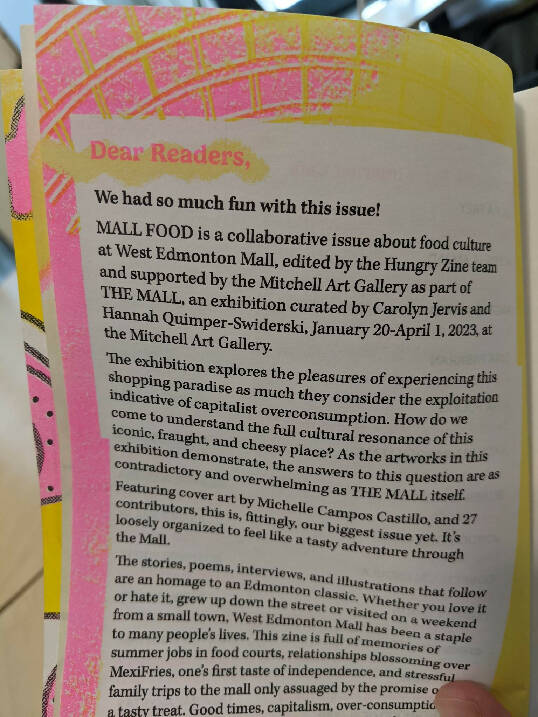 Dear Readers,
We had so much fun with this issue!
MALL FOOD is a collaborative issue about food culture
at West Edmonton Mall, edited by the Hungry Zine team
and supported by the Mitchell Art Gallery as part of
THE MALL, an exhibition curated by Carolyn Jervis and
Hannah Quimper-Swiderski, January 20-April 1, 2023, at
the Mitchell Art Gallery.
The exhibition explores the pleasures of experiencing this
shopping paradise as much they consider the exploitation
indicative of capitalist overconsumption. How do we
come to understand the full cultural resonance of this
iconic, fraught, and cheesy place? As the artworks in this
exhibition demonstrate, the answers to this question are as
contradictory and overwhelming as THE MALL itself.
Featuring cover art by Michelle Campos Castillo, and 27
contributors, this is, fittingly, our biggest issue yet. It's
loosely organized to feel like a tasty adventure through
the Mall.
The stories, poems, interviews, and illustrations that follow
are an homage to an Edmonton classic. Whether you love it
or hate it, grew up down the street or visited on a weekend
from a small town, West Edmonton Mall has been a staple
to many people's lives. This zine is full of memories of
summer jobs in food courts, relationships blossoming over
MexiFries, one's first taste of independence, and stressful
family trips to the mall only assuaged by the promise
a tasty treat. Good times, capitalism,